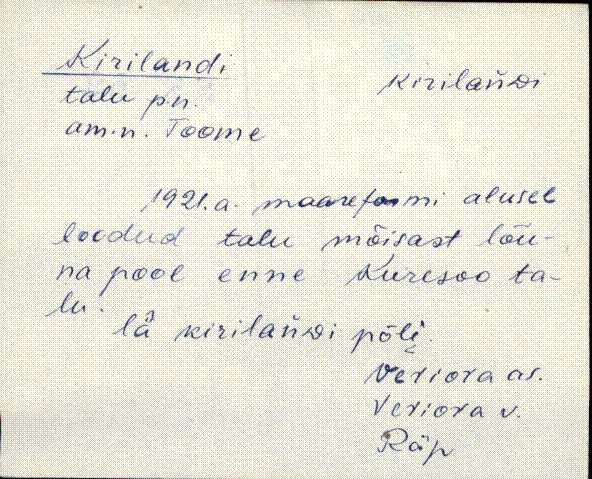 Kirilandi
kirilan̆di
talu p.n.
am.n. Toome
1921.a. maareformi alusel
loodud talu mõisast lõu-
na pool enne Kuresoo ta-
lu.
lä̆ kirilan̆di põli̮.
Veriora as.
Veriora v.
Räp